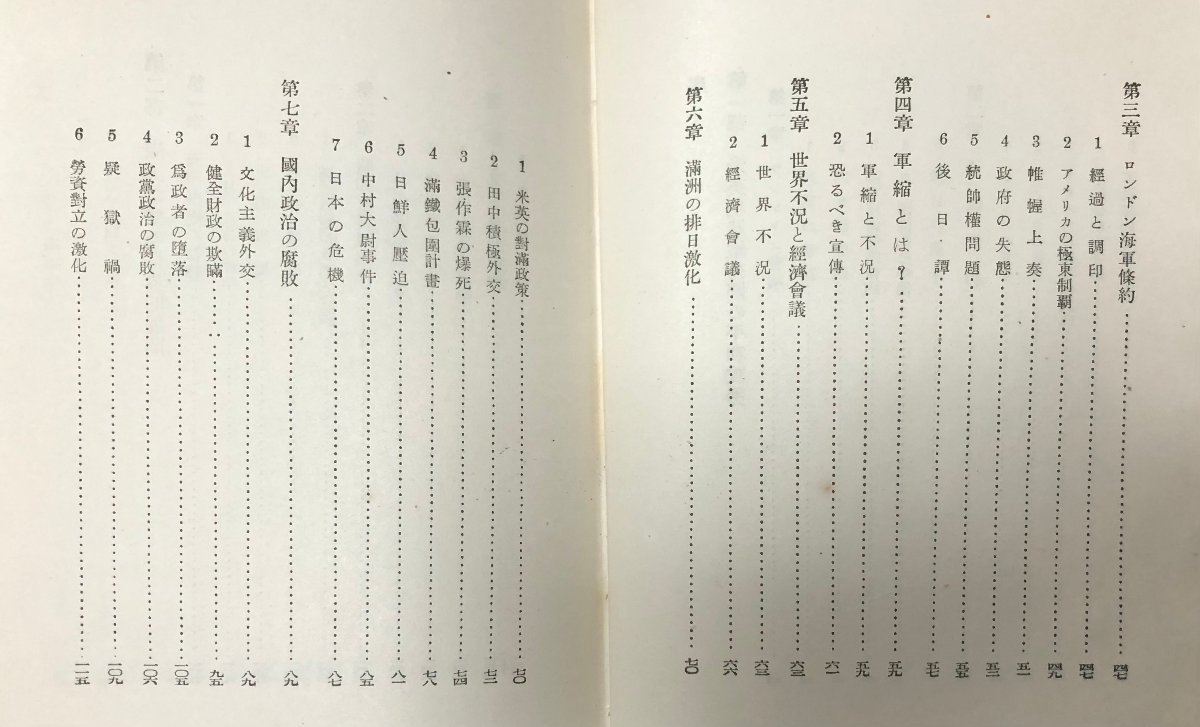 第三章 ロンドン海軍條約……四七
1 經過と調印……四七
2 アメリカの極東制覇……四九
3 帷幄上奏……五一
4 政府の失態……五三
5 統帥權問題……五五
6 後日譚……五七
第四章 軍縮とは？……五九
1 軍縮と不況……五九
2 恐るべき宣傳……六一
第五章 世界不況と經濟會議……六三
1 世界不況……六三
2 經濟會議……六六
第六章 滿洲の排日激化……七〇
1 米英の對滿政策……七〇
2 田中積極外交……七三
3 張作霖の爆死……七四
4 滿鐵包圍計畫……七八
5 日鮮人壓迫……八一
6 中村大尉事件……八五
7 日本の危機……八七
第七章 國內政治の腐敗……八九
1 文化主義外交……八九
2 健全財政の欺瞞……九五
3 爲政者の墮落……一〇五
4 政黨政治の腐敗……一〇六
5 疑獄禍……一〇九
6 勞資對立の激化……一一五